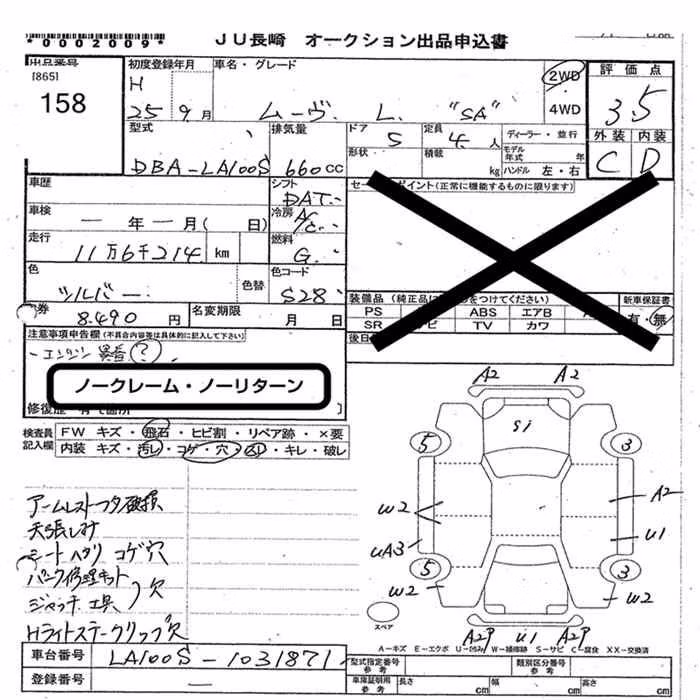 *0002009* JU長崎 オークション出品申込書
[865]
158
初度登録年月 車名・グレード
H
25 9月 ムーヴ. L. "SA"
2WD
4WD
評価点
3.5
外装 内装
C D
型式 排気量 ドア 定員
DBA-LA100S 660cc 5 4人
形状 積載 kg
ディーラー・並行
モデル年式 年
ハンドル 左・右
車歴 シフト
DAT
車検 ー年ー月( 日) 冷房 A/C
走行 11万6千214 km 燃料 G
色 シルバー 色替 色コード S28
券 8.490円 名変期限 月 日
(正常に機能するものに限ります)
装備品
PS ABS エアB
SR TV カワ
新車保証書
有・無
注意事項申告欄(不具合内容等は具体的に記入して下さい)
-エンジン 異音(?)
ノークレーム・ノーリターン
検査員記入欄
FW キズ・飛石・ヒビ割・リペア跡・×要
内装 キズ・汚レ・コゲ・穴・スレ・キレ・破レ
アームレストフタ破損
天張しみ
シートヘタリ コゲ穴
パンク修理キット
ジャッキ. 工具 )欠
Hライトステークリップ欠
A2 A2
Si
5 3
W2 A2
UA3 U1
5 3
W2 W2
スペア
A2P U1 A2P
A-キズ E-エクボ U-凹み W-補修跡 S-サビ C-腐食 XX-交換済
車台番号 LA100S-1031871
登録番号 ー
型式指定番号 参考 類別区分番号 参考
車庫証明用 参考 長さ cm 幅 cm 高さ cm